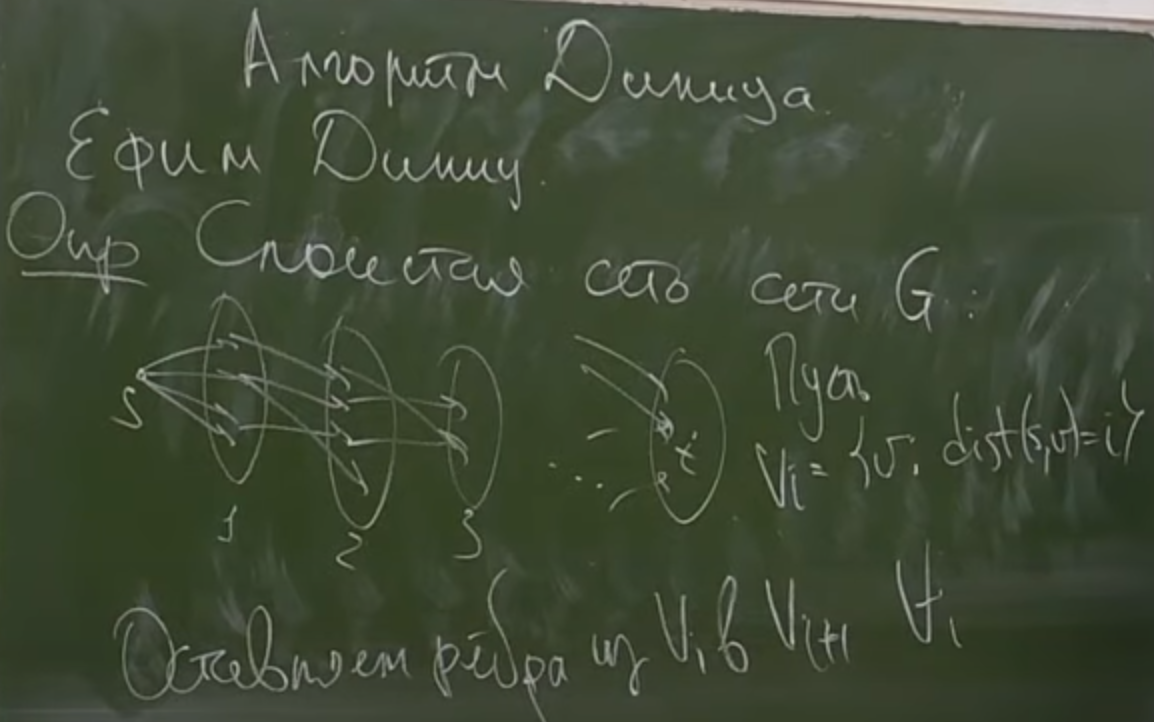 Алгоритм Диница
Ефим Диниц.
Опр Слоистая сеть сети G:
S 1 2 3 ... t
Пусть
Vi = {v: dist(s,v)=i}
Оставляем рёбра из Vi в Vi+1 ∀i